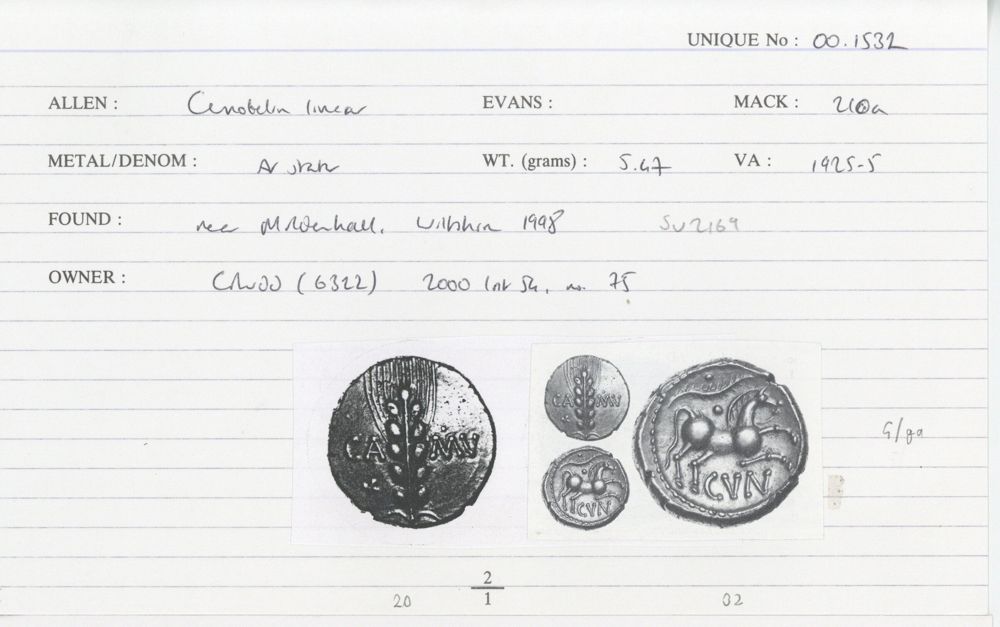 UNIQUE No : 00.1532
ALLEN : Cunobelin linear EVANS : MACK : 210a
METAL/DENOM : AV stater WT. (grams) : 5.47 VA : 1925-5
FOUND : near Mildenhall, Wiltshire 1998 SU2169
OWNER : 2000 no. 75
CA MV CA MV CVN
CVN
G/ga
2
20 1 02